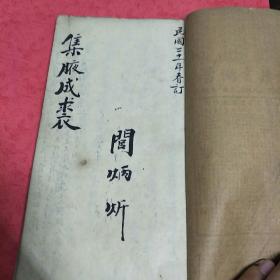 民國三十一年春訂
閻炳炘
集腋成裘